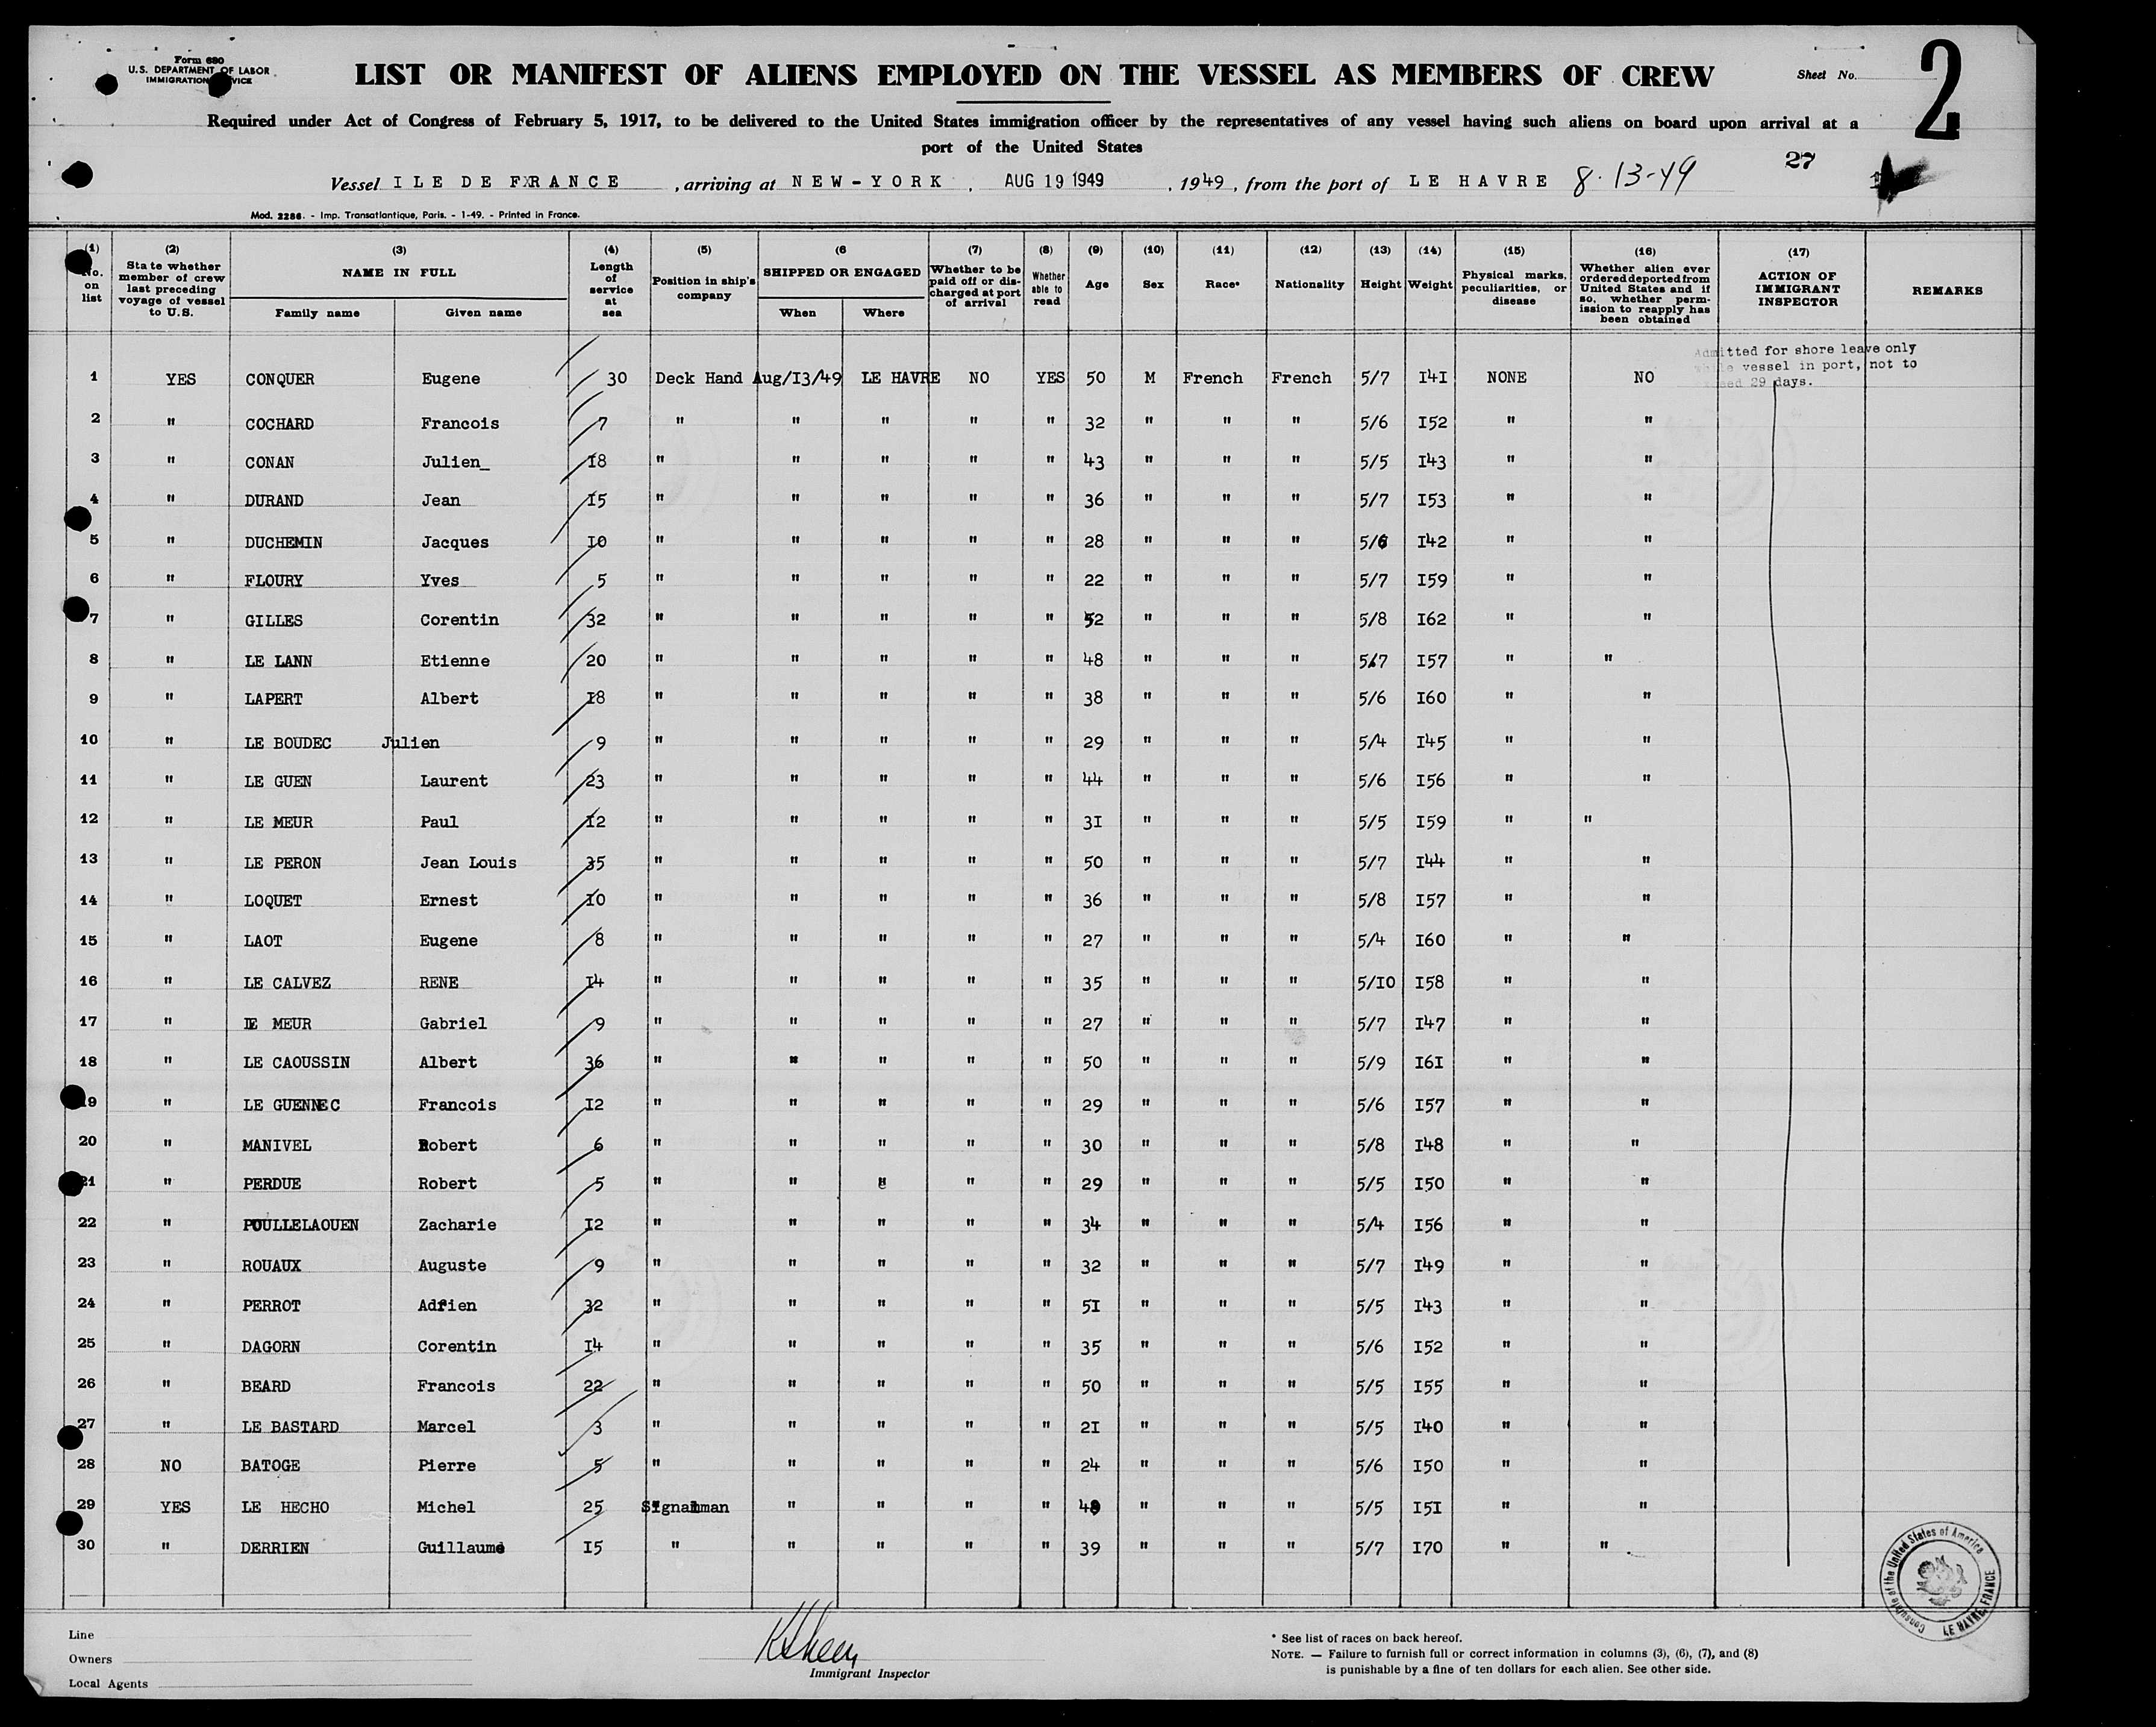 Form 680
U.S. DEPARTMENT OF LABOR
IMMIGRATION SERVICE
LIST OR MANIFEST OF ALIENS EMPLOYED ON THE VESSEL AS MEMBERS OF CREW
Sheet No. 2
Required under Act of Congress of February 5, 1917, to be delivered to the United States immigration officer by the representatives of any vessel having such aliens on board upon arrival at a
port of the United States
27
Vessel ILE DE FRANCE, arriving at NEW-YORK, AUG 19 1949, 1949, from the port of LE HAVRE 8-13-49
Mod. 2286. - Imp. Transatlantique, Paris. - 1-49. - Printed in France.
(1) No. on list (2) State whether member of crew last preceding voyage of vessel to U.S. (3) NAME IN FULL Family name Given name (4) Length of service at sea (5) Position in ship's company (6 SHIPPED OR ENGAGED When Where (7) Whether to be paid off or discharged at port of arrival (8) Whether able to read (9) Age (10) Sex (11) Race* (12) Nationality (13) Height (14) Weight (15) Physical marks, peculiarities, or disease (16) Whether alien ever ordered deported from United States and if so, whether permission to reapply has been obtained (17) ACTION OF IMMIGRANT INSPECTOR REMARKS
Admitted for shore leave only
while vessel in port, not to
exceed 29 days.
1 YES CONQUER Eugene 30 Deck Hand Aug/I3/49 LE HAVRE NO YES 50 M French French 5/7 I4I NONE NO
2 " COCHARD Francois 7 " " " " " 32 " " " 5/6 I52 " "
3 " CONAN Julien_ I8 " " " " " 43 " " " 5/5 I43 " "
4 " DURAND Jean I5 " " " " " 36 " " " 5/7 I53 " "
5 " DUCHEMIN Jacques I0 " " " " " 28 " " " 5/6 I42 " "
6 " FLOURY Yves 5 " " " " " 22 " " " 5/7 I59 " "
7 " GILLES Corentin 32 " " " " " 52 " " " 5/8 I62 " "
8 " LE LANN Etienne 20 " " " " " 48 " " " 5/7 I57 " "
9 " LAPERT Albert I8 " " " " " 38 " " " 5/6 I60 " "
10 " LE BOUDEC Julien 9 " " " " " 29 " " " 5/4 I45 " "
11 " LE GUEN Laurent 23 " " " " " 44 " " " 5/6 I56 " "
12 " LE MEUR Paul I2 " " " " " 3I " " " 5/5 I59 " "
13 " LE PERON Jean Louis 35 " " " " " 50 " " " 5/7 I44 " "
14 " LOQUET Ernest I0 " " " " " 36 " " " 5/8 I57 " "
15 " LAOT Eugene 8 " " " " " 27 " " " 5/4 I60 " "
16 " LE CALVEZ RENE I4 " " " " " 35 " " " 5/I0 I58 " "
17 " LE MEUR Gabriel 9 " " " " " 27 " " " 5/7 I47 " "
18 " LE CAOUSSIN Albert 36 " " " " " 50 " " " 5/9 I6I " "
19 " LE GUENNEC Francois I2 " " " " " 29 " " " 5/6 I57 " "
20 " MANIVEL Robert 6 " " " " " 30 " " " 5/8 I48 " "
21 " PERDUE Robert 5 " " " " " 29 " " " 5/5 I50 " "
22 " POULLELAOUEN Zacharie I2 " " " " " 34 " " " 5/4 I56 " "
23 " ROUAUX Auguste 9 " " " " " 32 " " " 5/7 I49 " "
24 " PERROT Adrien 32 " " " " " 5I " " " 5/5 I43 " "
25 " DAGORN Corentin I4 " " " " " 35 " " " 5/6 I52 " "
26 " BEARD Francois 22 " " " " " 50 " " " 5/5 I55 " "
27 " LE BASTARD Marcel 3 " " " " " 2I " " " 5/5 I40 " "
28 NO BATOGE Pierre 5 " " " " " 24 " " " 5/6 I50 " "
29 YES LE HECHO Michel 25 Signalman " " " " " " " 5/5 I5I " "
30 " DERRIEN Guillaume I5 " " " " " 39 " " " 5/7 I70 " "
Consulate of the United States of America
LE HAVRE, FRANCE
Line
Owners
Local Agents
Immigrant Inspector
* See list of races on back hereof.
NOTE. — Failure to furnish full or correct information in columns (3), (6), (7), and (8)
is punishable by a fine of ten dollars for each alien. See other side.